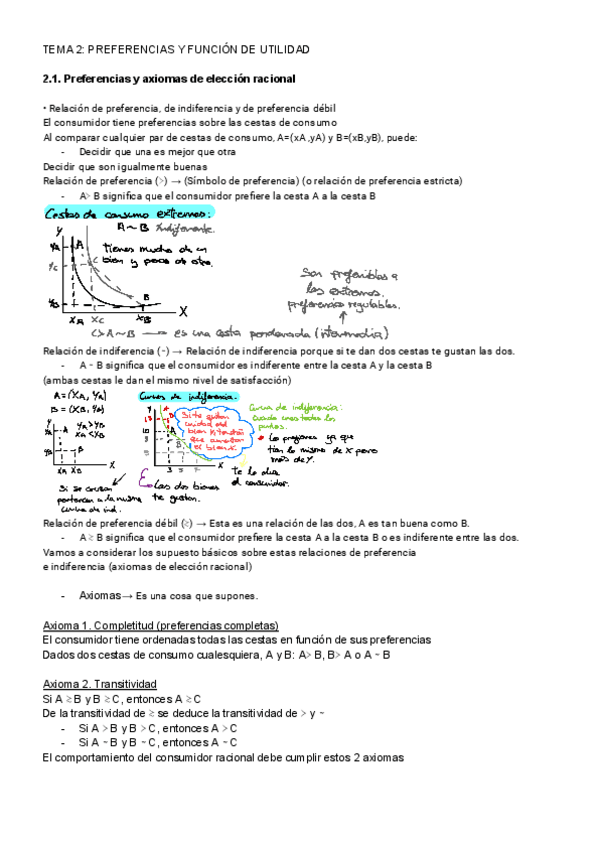 TEMA 2: PREFERENCIAS Y FUNCIÓN DE UTILIDAD
2.1. Preferencias y axiomas de elección racional
• Relación de preferencia, de indiferencia y de preferencia débil
El consumidor tiene preferencias sobre las cestas de consumo
Al comparar cualquier par de cestas de consumo, A=(xA,yA) y B=(xB,yB), puede:
- Decidir que una es mejor que otra
Decidir que son igualmente buenas
Relación de preferencia (>) → (Símbolo de preferencia) (o relación de preferencia estricta)
- A> B significa que el consumidor prefiere la cesta A a la cesta B
Cestas de consumo extremos:
A~B Indiferente.
Y
YA
A
tienes mucho de un
bien y poco de otro.
YC
C
Son preferibles a
los extremos.
preferencias regulables.
YB
B
XA XC XB X
C>A~B → es una cesta ponderada (intermedia)
Relación de indiferencia (~) → Relación de indiferencia porque si te dan dos cestas te gustan las dos.
- A ~ B significa que el consumidor es indiferente entre la cesta A y la cesta B
(ambas cestas le dan el mismo nivel de satisfacción)
A=(XA, YA)
B=(XB, YB)
YA>YB
XA<XB
YA
A
YB
B
XA XB X
Curvas de indiferencia.
Y
A
B
X
Si te quitan
unidad del
bien Y tendrá
que aumentar
el bien X.
Curva de indiferencia:
cuando unes todos los
puntos.
Lo prefiero ya que
tían lo mismo de X pero
más de Y.
te lo dice
el consumidor.
Los dos bienes
te gustan.
Si se cruzan
pertenecen a la misma
curva de ind.
Relación de preferencia débil (≿) → Esta es una relación de las dos, A es tan buena como B.
- A ≿ B significa que el consumidor prefiere la cesta A a la cesta B o es indiferente entre las dos.
Vamos a considerar los supuesto básicos sobre estas relaciones de preferencia
e indiferencia (axiomas de elección racional)
- Axiomas→ Es una cosa que supones.
Axioma 1. Completitud (preferencias completas)
El consumidor tiene ordenadas todas las cestas en función de sus preferencias
Dados dos cestas de consumo cualesquiera, A y B: A> B, B> A o A ~ B
Axioma 2. Transitividad
Si A ≿ B y B ≿ C, entonces A ≿ C
De la transitividad de ≿ se deduce la transitividad de > y ~
- Si A > B y B > C, entonces A > C
- Si A ~ B y B ~ C, entonces A ~ C
El comportamiento del consumidor racional debe cumplir estos 2 axiomas